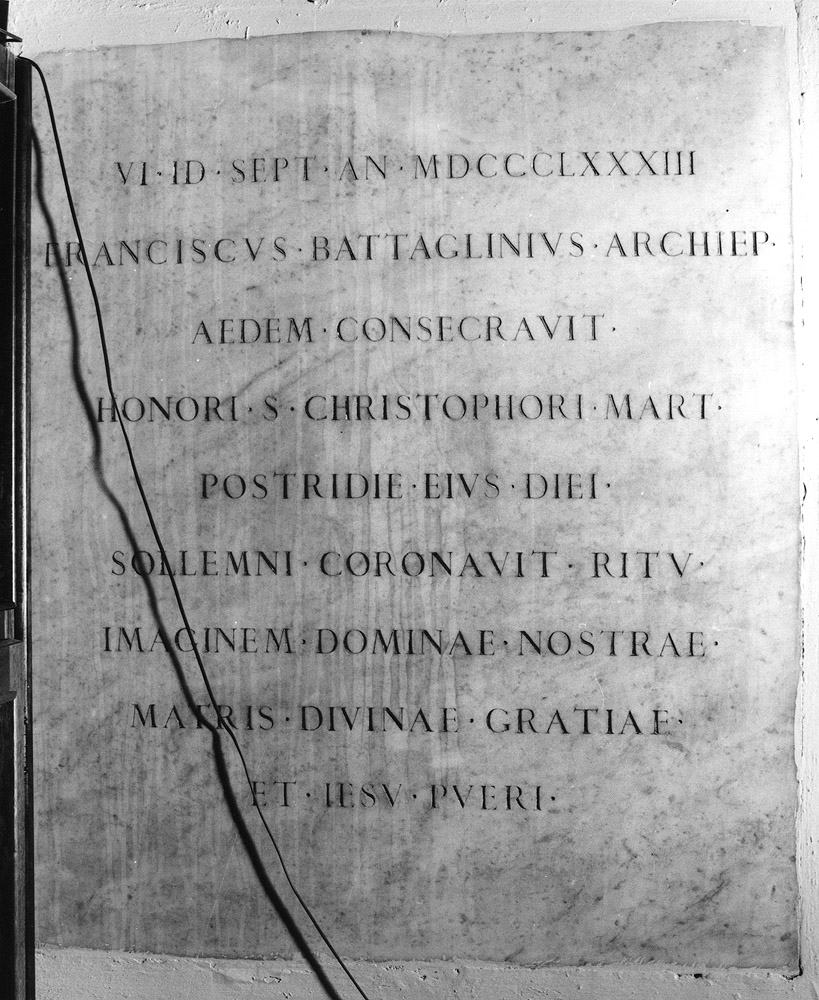 VI · ID · SEPT · AN · MDCCCCLXXXIII
FRANCISCVS · BATTAGLINIVS · ARCHIEP ·
AEDEM · CONSECRAVIT ·
HONORI · S · CHRISTOPHORI · MART ·
POSTRIDIE · EIVS · DIEI ·
SOLLEMNI · CORONAVIT · RITV ·
IMAGINEM · DOMINAE · NOSTRAE ·
MATRIS · DIVINAE · GRATIAE ·
ET · IESV · PVERI ·